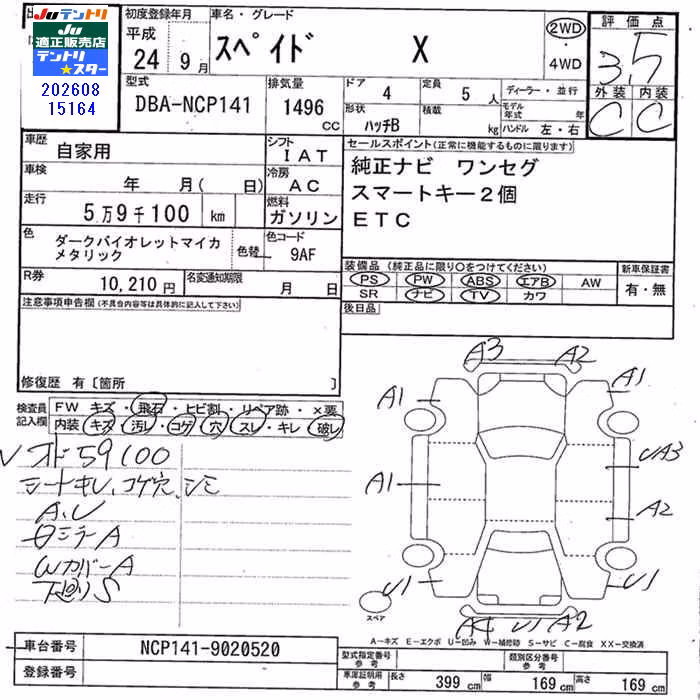 JUテントリ
適正販売店
テントリ
★スター
202608
15164
初度登録年月
平成
24 9月
車名・グレード
スペイド X
2WD
4WD
評価点
3.5
外装 内装
C C
型式
DBA-NCP141
排気量
1496
CC
ドア 4
定員 5人
形状 ハッチB
積載 kg
ディーラー・並行
モデル年式 年
ハンドル 左・右
車歴
自家用
シフト
IAT
車検
年 月( 日)
冷房
AC
走行
5万9千100 km
燃料
ガソリン
色
ダークバイオレットマイカ
メタリック
色替
色コード
9AF
R券
10,210円
名変通知期限
月 日
セールスポイント(正常に機能するものに限ります)
純正ナビ ワンセグ
スマートキー2個
ETC
装備品(純正品に限り○をつけてください)
PS PW ABS エアB AW
SR ナビ TV カワ
新車保証書
有・無
後日品
注意事項申告欄(不具合内容等は具体的に記入して下さい)
修復歴 有〔箇所 〕
検査員
記入欄
FW キズ・飛石・ヒビ割・リペア跡・×要
内装・キズ・汚レ・コゲ・穴・スレ・キレ・破レ
59100
シートキレ、コゲ穴、シミ
A.U
ミラーA
WカバーA
下廻りS
A3 A2
A1 A1
A1 UA3
A2
U1 U1
A4 U1 A2
スペア
A−キズ E−エクボ U−凹み W−補修跡 S−サビ C−腐食 XX−交換済
車台番号
NCP141-9020520
登録番号
型式指定番号
参考
類別区分番号
参考
車庫証明用
参考
長さ 399 cm
幅 169 cm
高さ 169 cm